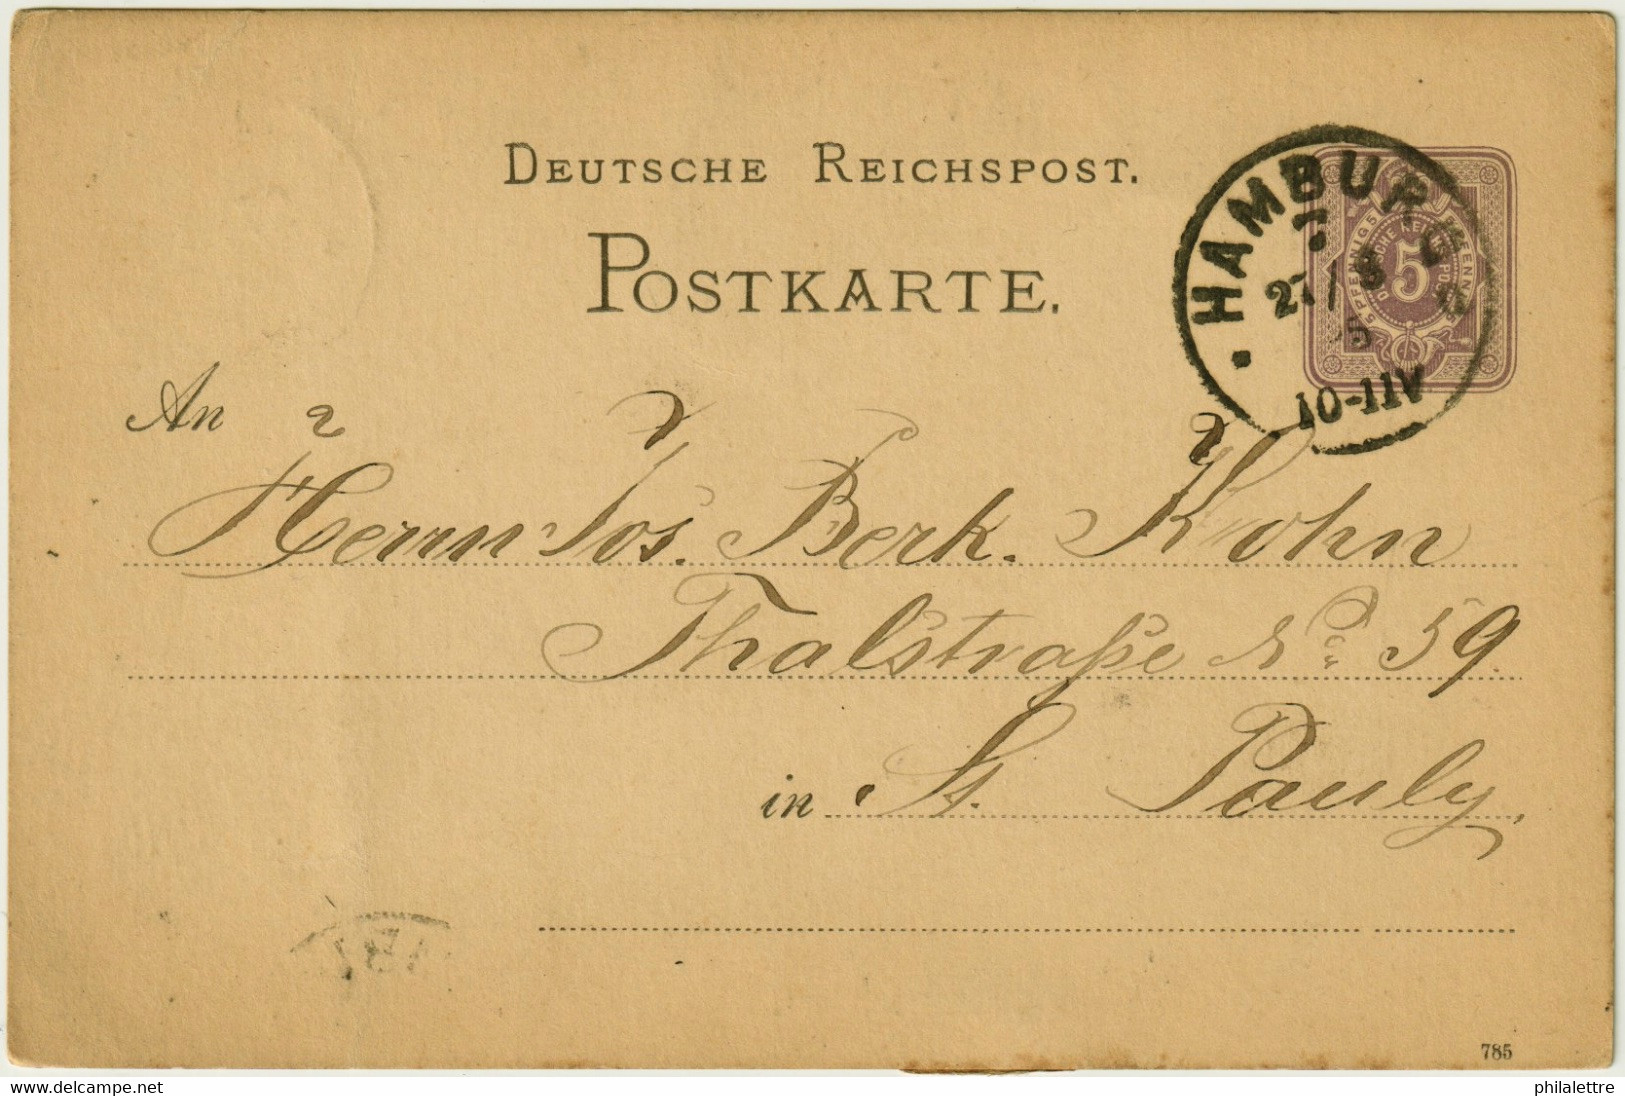 DEUTSCHE REICHSPOST.
POSTKARTE.
HAMBURG
27/8
10-11V
5
An
Herrn Jos. Berk. Kohn
Thalstraße No 59.
in St. Pauly,
785
www.delcampe.net
philalettre